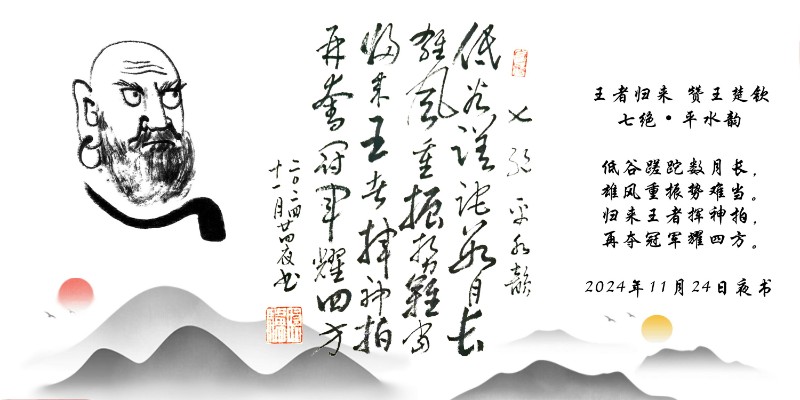 七绝 平水韵
低谷蹉跎数月长
雄风重振势难当
归来王者挥神拍
再夺冠军耀四方
二〇二四
十一月廿四夜书
王者归来 赞王楚钦
七绝·平水韵
低谷蹉跎数月长，
雄风重振势难当。
归来王者挥神拍，
再夺冠军耀四方。
2024年11月24日夜书